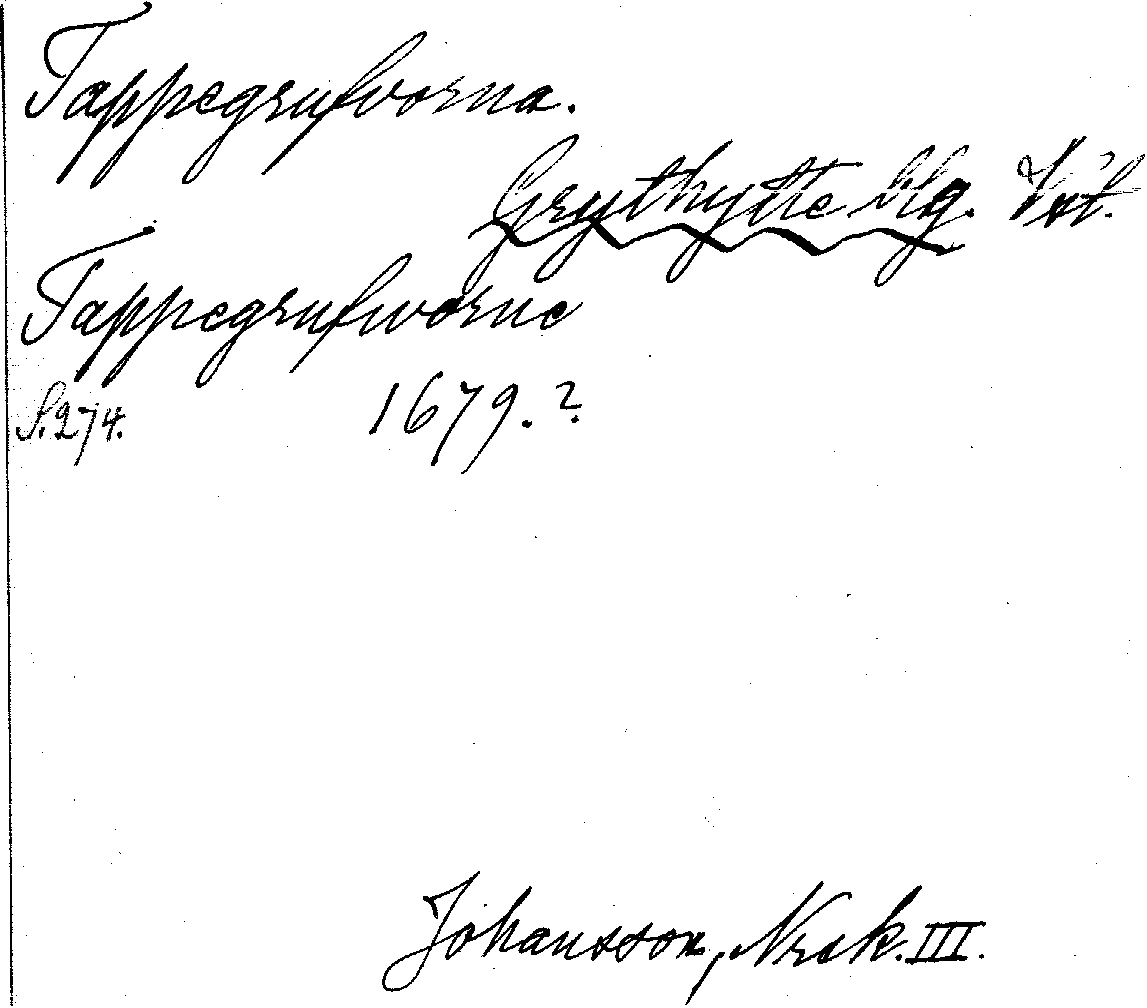 Tappegrufvorna.
Grythytte blg. Vstl.
Tappegrufworne
S. 274. 1679. ?
Johansson, Norak. III.